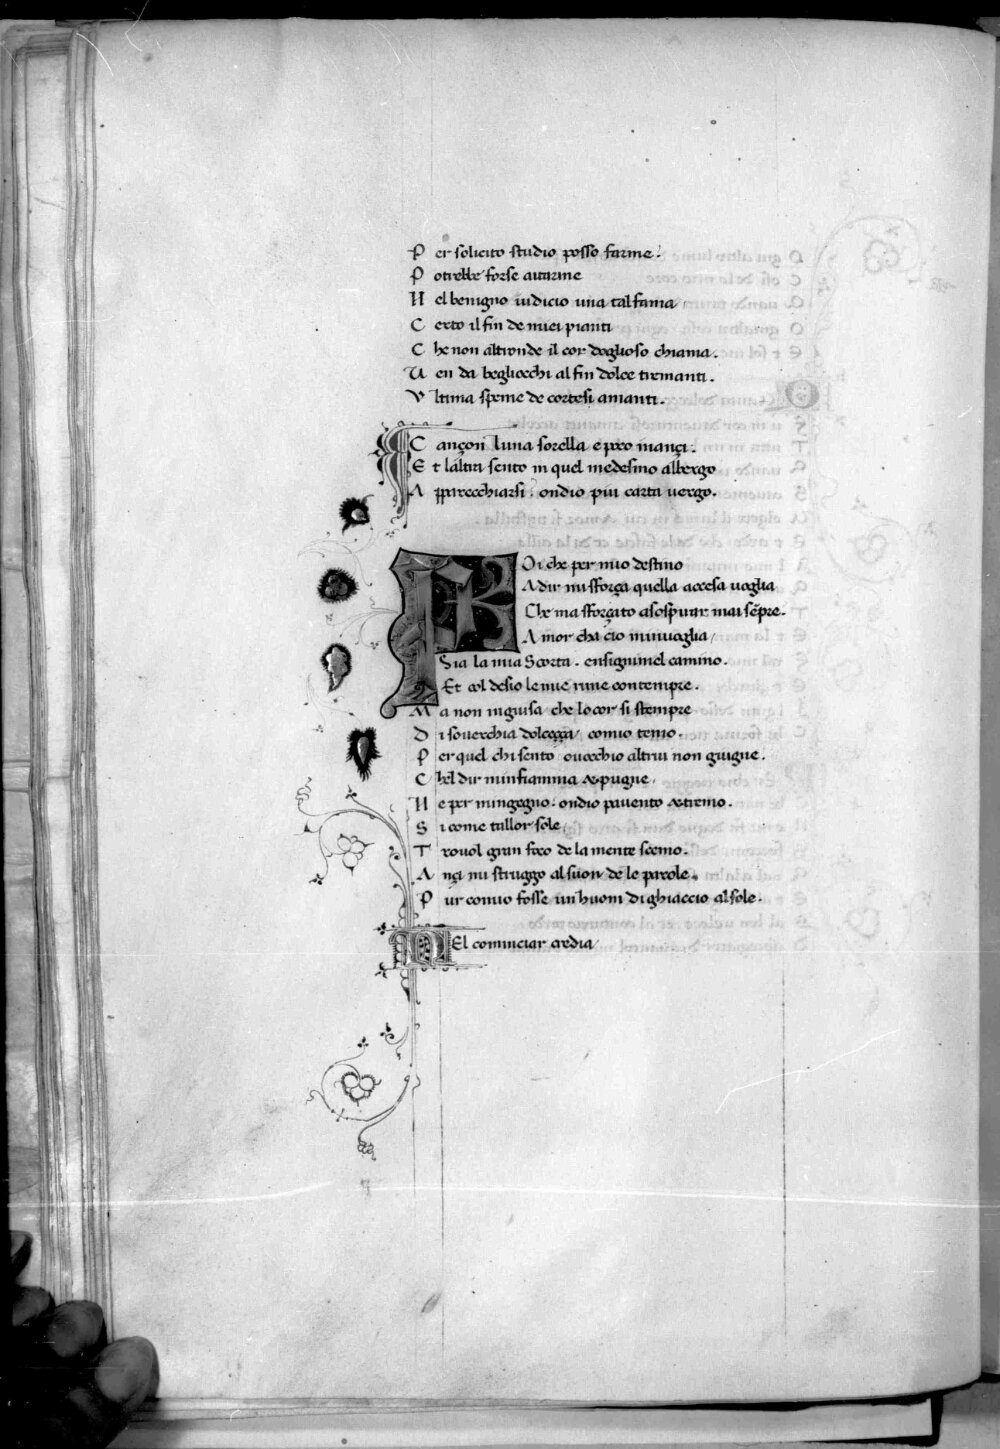 P er solicito studio posso farme.
P otrebbe forse aitarme
N el benigno iudicio una tal fama
C erto il fin de miei pianti
C he non altronde il cor doglioso chiama.
V en da begliocchi al fin dolce tremanti.
V ltima speme de cortesi amanti.
C ançon luna sorella e poco inançi.
E t laltri sento in quel medesmo albergo
A pparecchiarsi. ondio piu carta uergo.
P Oi che per mio destino
A dir mi sforça quella accesa uoglia
Che ma sforçato a sospirar mai sẽpre.
A mor cha cio minuoglia
Sia la mia Scorta. ensignimel camino.
Et col desio le mie rime contempre.
M a non in guisa che lo cor si stempre
D i souerchia dolceçça, comio temo.
P er quel chi sento ouocchio altrui non giugne.
C hel dir minfiamma & pugne
N e per mingegno. ondio pauento & tremo.
S i come tallor sole
T rouol gran foco de la mente scemo.
A nçi mi struggo al suon de le parole.
P ur comio fosse un huom di ghiaccio al sole.
N El cominciar credia